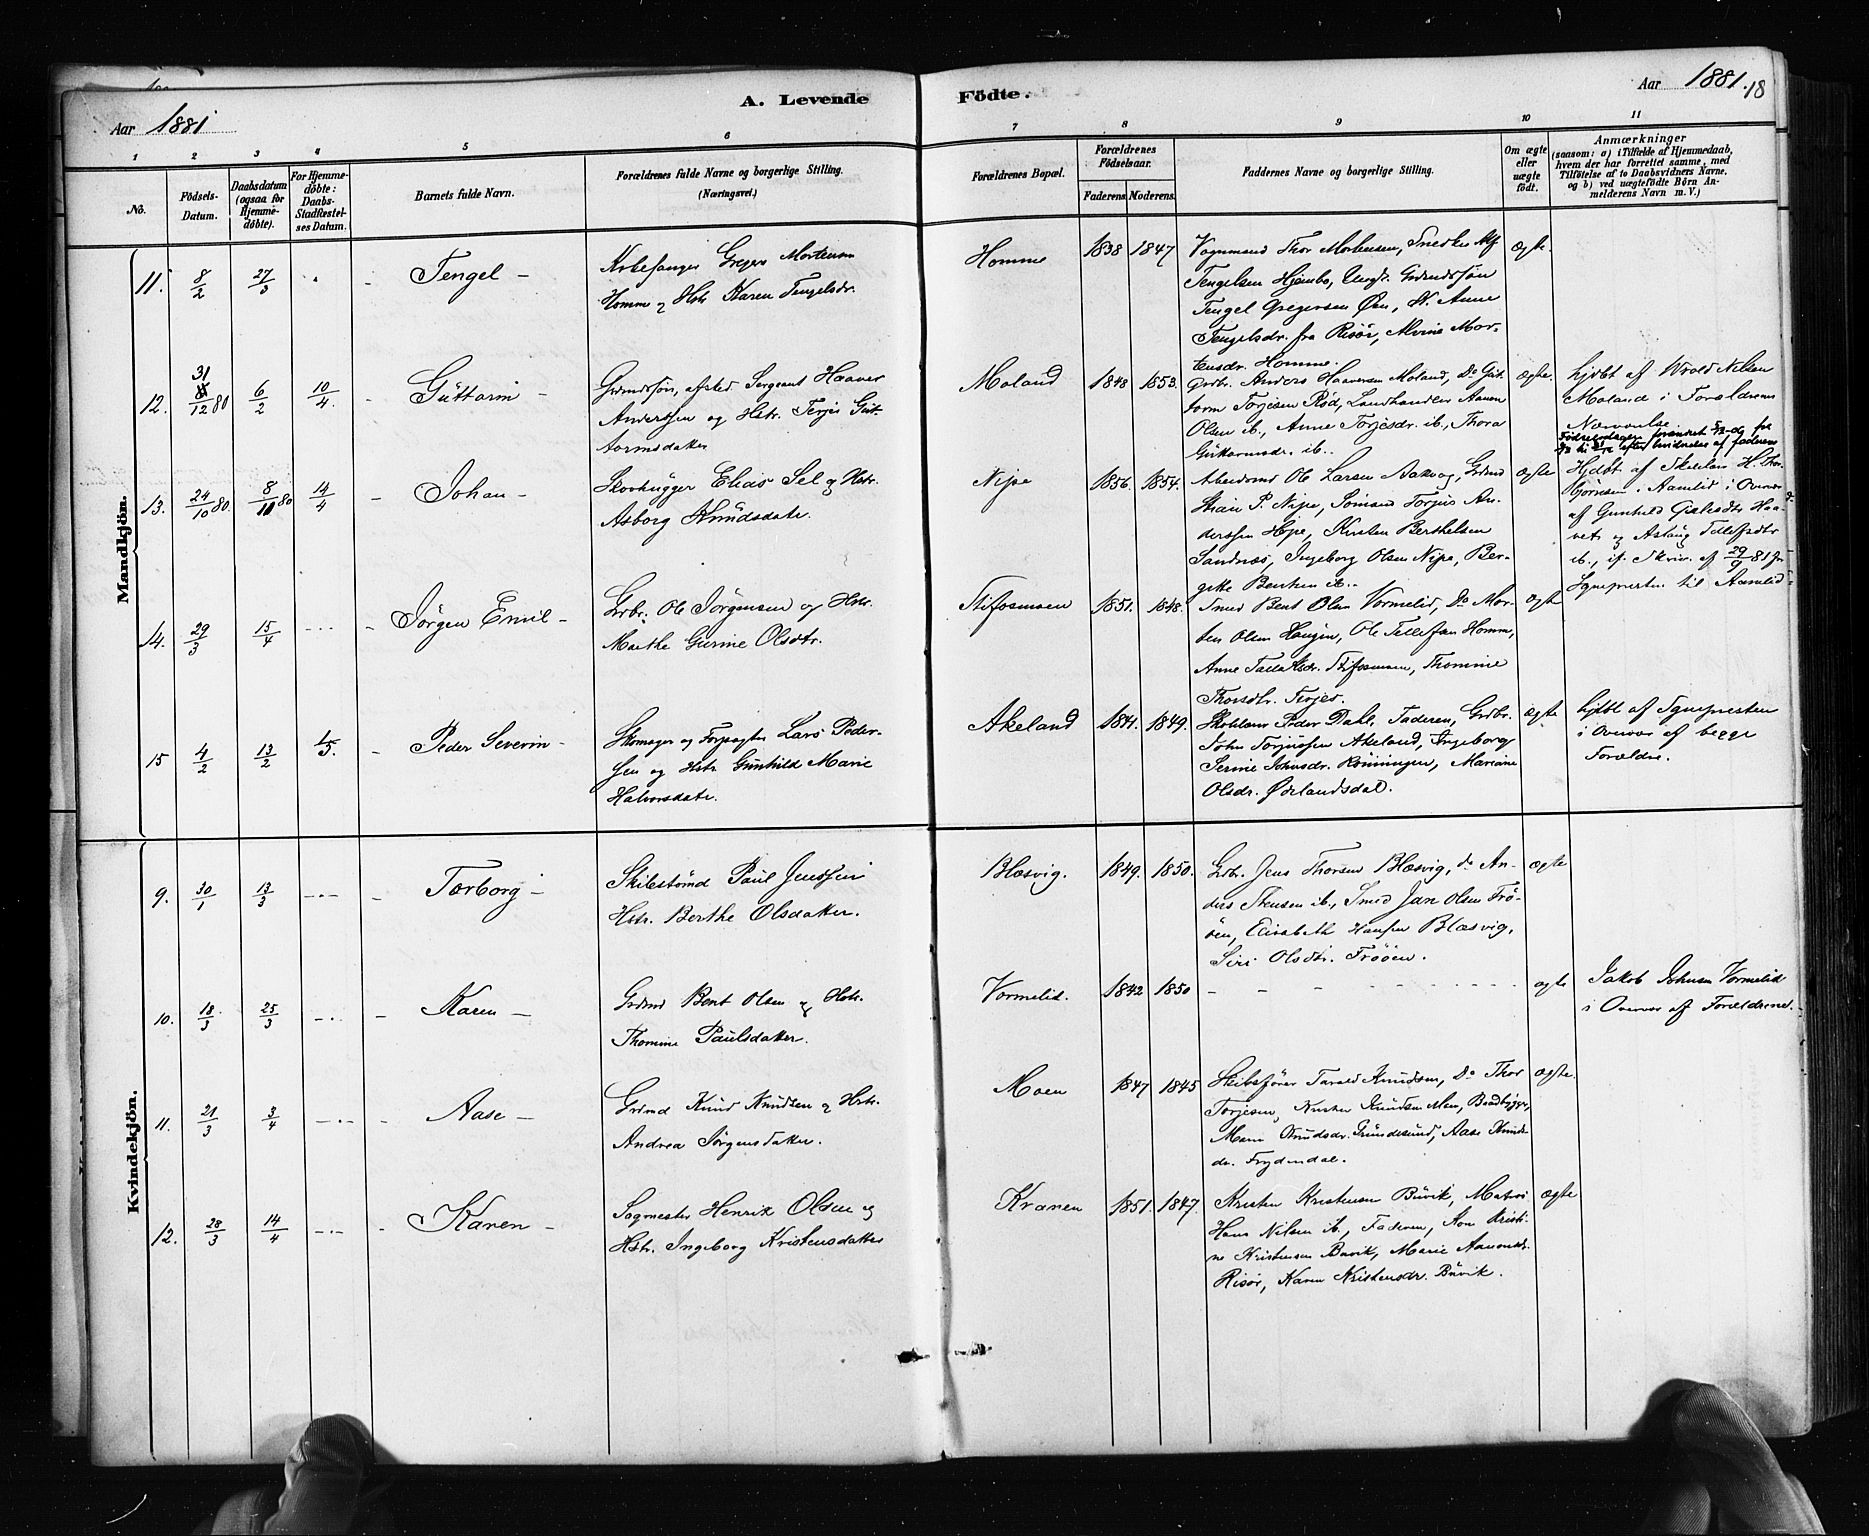 A. Levende Födte.
Aar 1881
Aar 1881. 18
1 2 3 4 5 6 7 8 9 10 11
No.
Födsels-Datum.
Daabsdatum (ogsaa for Hjemmedöbte).
For Hjemmedöbte: Daabs-Stadfæstelses Datum.
Barnets fulde Navn.
Forældrenes fulde Navne og borgerlige Stilling.
(Næringsvei.)
Forældrenes Bopæl.
Forældrenes Födselsaar.
Faderens Moderens
Faddernes Navne og borgerlige Stilling.
Om ægte eller uægte födt.
Anmærkninger
(saasom: a) i Tilfælde af Hjemmedaab,
hvem der har forrettet samme, med
Tilföielse af to Daabsvidners Navne,
og b) ved uægtefödte Börn Anmelderens Navn m.V.)
Mandkjön.
11. 8/2 27/3 Tengel
Gregers Mortensen
Homme og Hstr. Karen Tengelsdr.
Homme 1838 1847
Vognmand Thor Mortensen, Snedker Alf
Tengelsen Hjembo, Ungk. Grdmdssön
Tengel Gregersen Öen, Anne
Tengelsdr. fra Risör, Alvine Mor-
tensdr. Homme.
Ægte.
12. 31/12 80 6/2 10/4 Guttorm
Grdmdssön, afsked. Sergeant Haaver
Anderssen og Hstr. Terjer Gut-
tormsdatter
Moland 1848 1853.
Grdbr. Anders Haaversen Moland, Do Gut-
torm Torjesen Röd, Landhandler Aanon
Olsen ib., Anne Torjesdr. ib., Thora
Guttormsdr. ib..
Ægte.
hjdöbt af Wrold Nilsen
Moland i Forældrenes
Nærværelse
13. 24/10 80. 8/11 80 14/4 Johan
Skovhugger Elias Sel og Hstr.
Asborg Knudsdatr.
Nipe 1856. 1854.
Ole Larsen Aakvog, Grdmd
P. Nipe, Sömand Torjus An-
derssen Hope, Kristen Berthelsen
Sandnæs, Ingeborg Olsen Nipe, Ber-
gitte ib..
Ægte
Hjdöbt af Skolelær. H. Thor-
björnsen Aamlid i Overvær
af Gunhild
og Aslaug Tellefsdtr
ib., if. Skriv. af 29/9 81 fra
Sognepresten til Aamlid
14. 29/3 15/4 Jörgen Emil
Grdbr. Ole Jörgensen og Hstr.
Marthe Gurine Olsdtr.
Stifosmoen 1851. 1848.
Smed Bent Olsen Vormelid, Do Mor-
ten Olsen Haugen, Ole Tellefsen Homm,
Anne Tallaksdr. Stifosmoen, Thomine
Thorsdtr. Terjes.
ægte
15 4/2 13/2 1/5. Peder Severin
Skomager og Forpagter Lars Peder-
sen og Hstr. Gunhild Marie
Halvorsdatr.
Akeland 1841. 1849.
Skolelærer Peder Dahl, Faderen, Grdbr.
John Torjussen Akeland, Ingeborg
Serine Johnsdr. Rönningen, Mariane
Olsdr. Örlandsdal.
ægte
hjdöbt af Sognepresten
i Overvær af begge
Forældre.
Kvindekjön.
9. 30/1 13/3 Tarborg
Skibstömd Paul Jenssen
Hstr. Berthe Olsdatter.
Blæsvig. 1849. 1850.
Grdbr. Jens Thorsen Blæsvig, do An-
ders Thensen ib., Smed Jan Olsen Frö-
öen, Elisabeth Hansen Blæsvig,
Siri Olsdtr. Frööen.
ægte
10. 18/3 25/3 Karen
Grdmd Bent Olsen og Hstr.
Thomine Paulsdatter.
Vormelid. 1842 1850
ægte
Jakob Johnsen Vormelid
i Overvær af Forældrene.
11. 21/3 3/4 Aase
Grdmd Knud Knudsen og Hstr.
Andrea Jörgensdatter.
Moen 1847 1845
Skibsförer Tarald Knudsen, Do Thor
Torjesen, Kristen Knudsen Moen, Baadbygger,
Maren Knudsdr. Grundesund, Aase Knuds-
dr. Frydendal.
Ægte.
12. 28/3 14/4 Karen
Sagmester Henrik Olsen og
Hstr. Ingeborg Kristensdatter
Kranen 1851. 1847.
Kristen Kristensen Buvik, Matros
Hans Nilsen ib., Faderen, Kristi-
ne Kristensen Buvik, Marie Aanonsdr.
Risör, Karen Kristensdr. Buvik.
Ægte